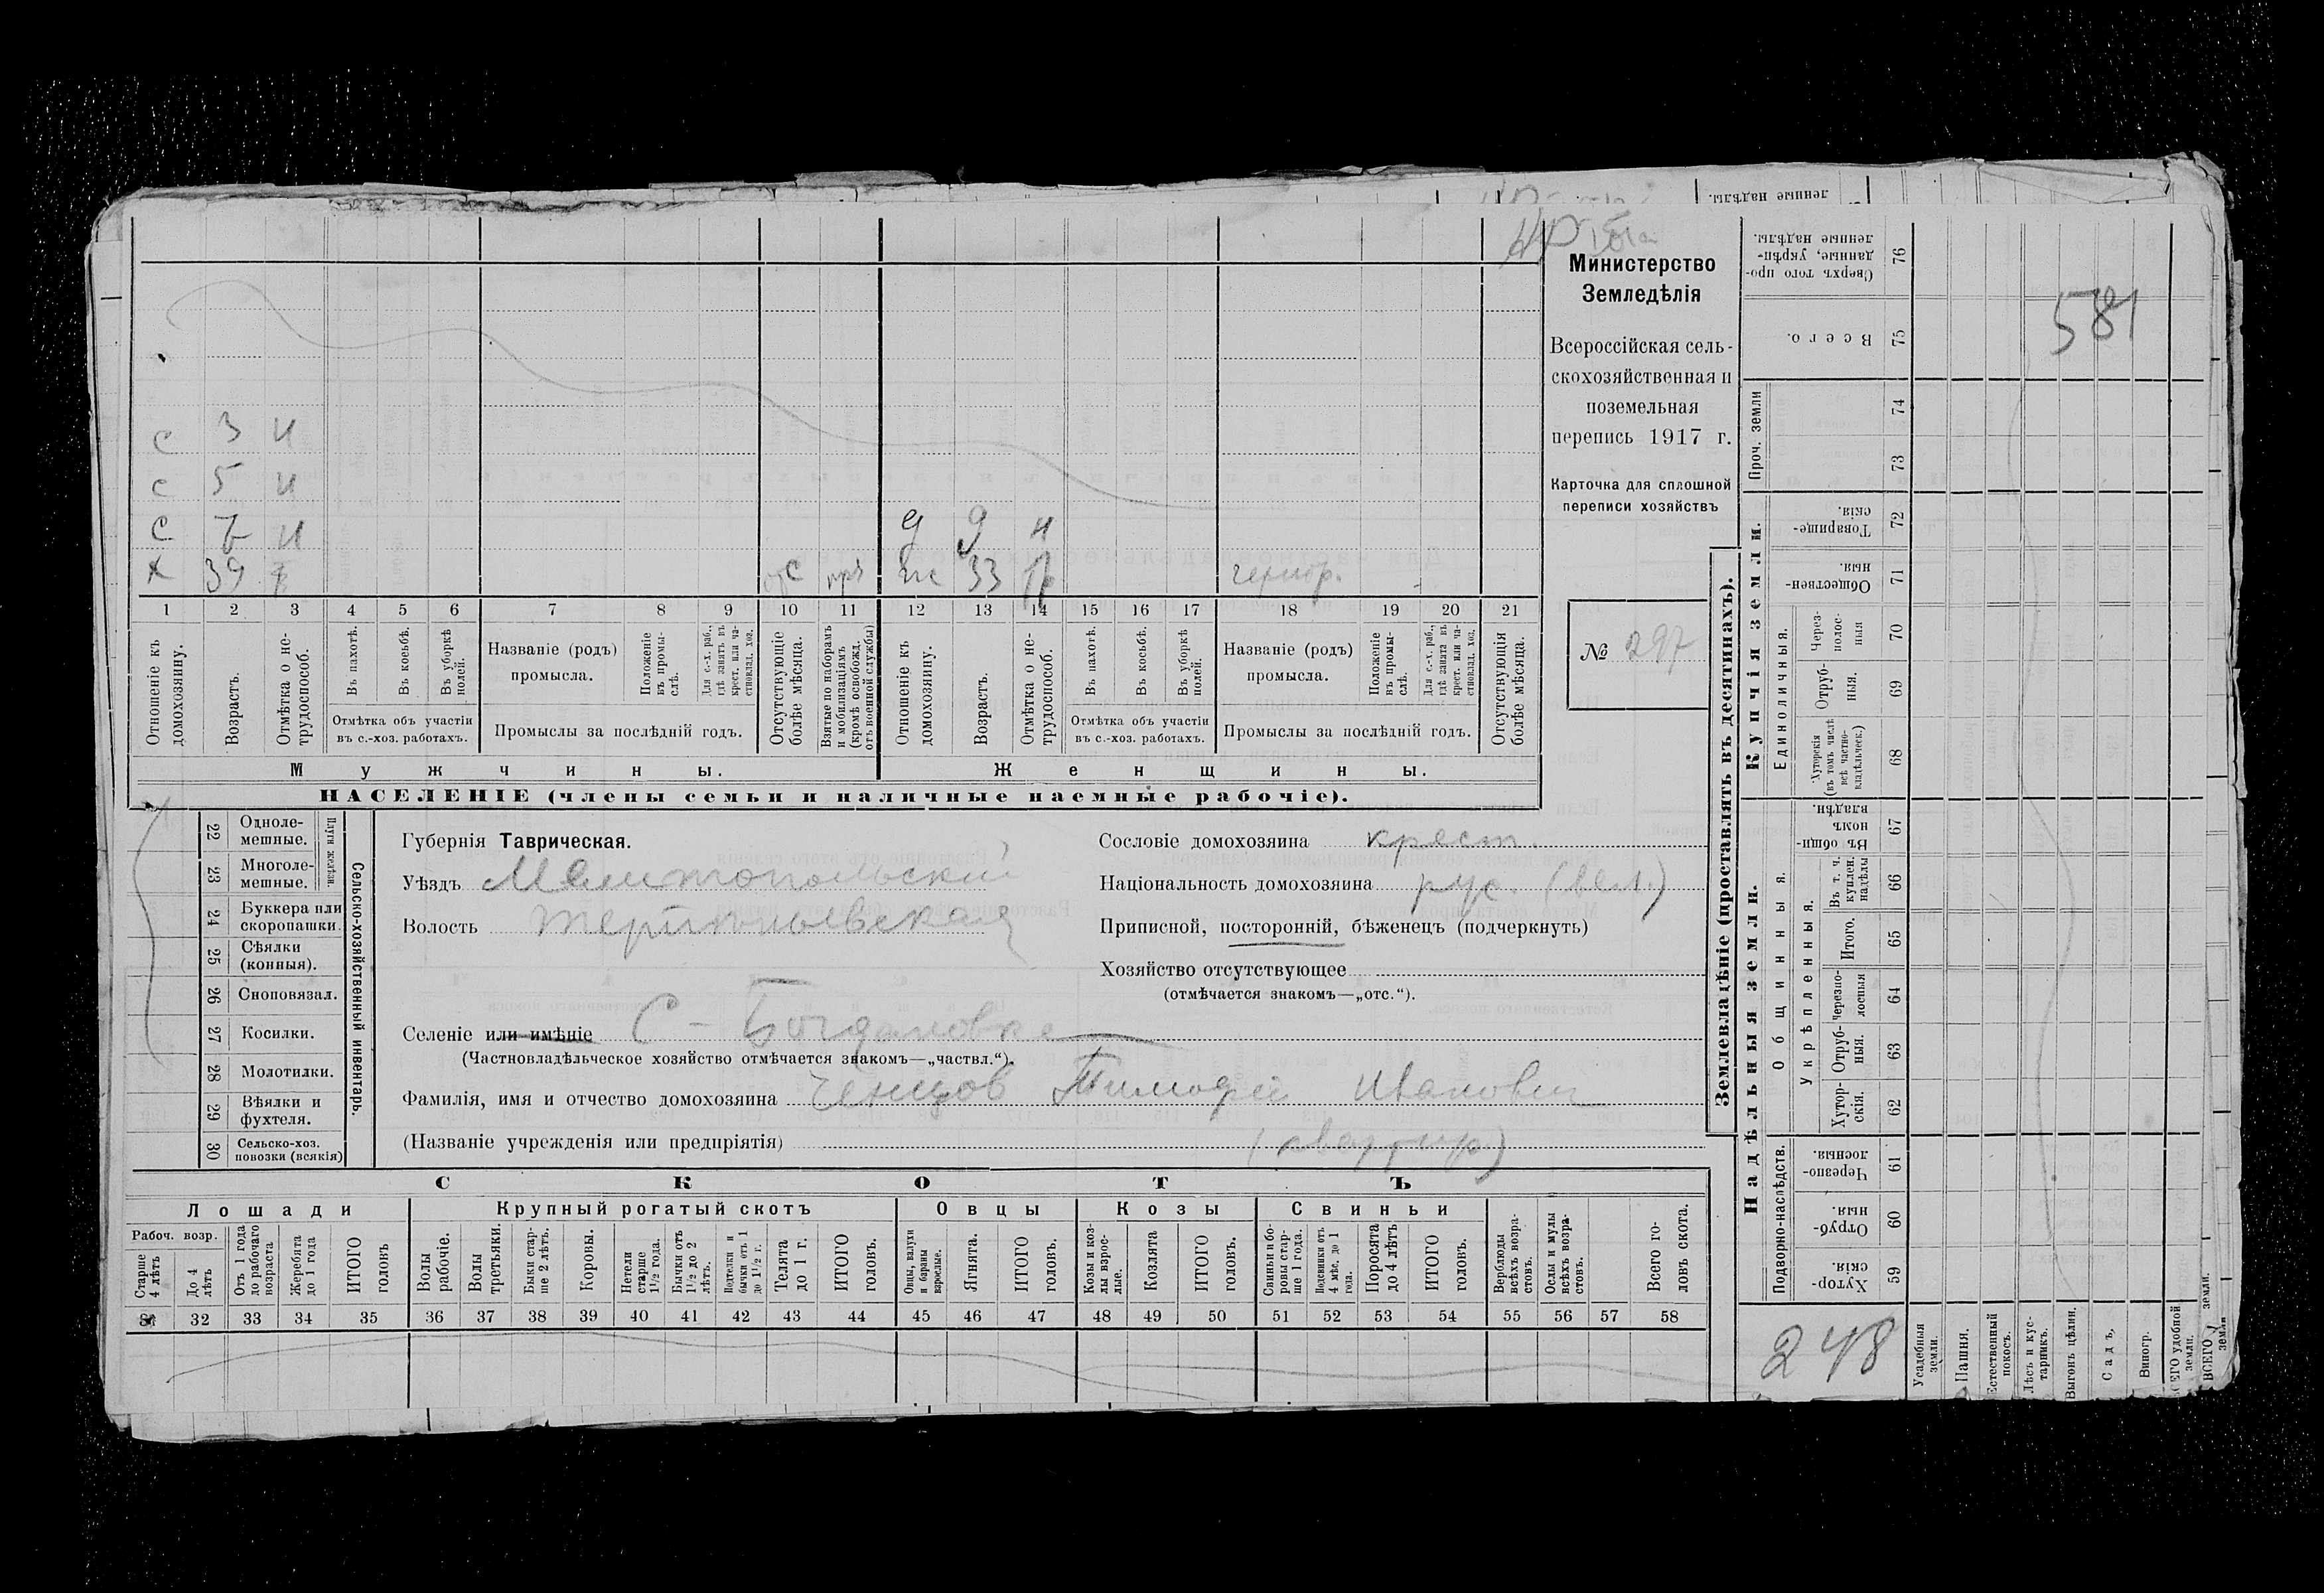 ленные надѣлы.
Министерство
Земледѣлія
Всероссійская сель-
скохозяйственная и
поземельная
перепись 1917 г.
Карточка для сплошной
переписи хозяйствъ
№ 297
с 3 н
с 5 н
с 7 н
д 9 н
х 39 отс жс 33
1 2 3 4 5 6 7 8 9 10 11 12 13 14 15 16 17 18 19 20 21
Отношеніе къ домохозяину.
Возрастъ.
Отмѣтка о не-трудоспособ.
Въ пахотѣ.
Въ косьбѣ.
Въ уборкѣ полей.
Отмѣтка объ участіи
въ с.-хоз. работахъ.
Названіе (родъ)
промысла.
Положеніе въ промы-слѣ.
Для с.-х. раб., гдѣ занятъ въ крест. или ча-стновлад. хоз.
Промыслы за послѣдній годъ.
Отсутствующіе болѣе мѣсяца.
Взятые по наборамъ и мобилизаціямъ (кромѣ освобожд. отъ военной службы)
Отношеніе къ домохозяину.
Возрастъ.
Отмѣтка о не-трудоспособ.
Въ пахотѣ.
Въ косьбѣ.
Въ уборкѣ полей.
Отмѣтка объ участіи
въ с.-хоз. работахъ.
Названіе (родъ)
промысла.
Положеніе въ промы-слѣ.
Для с.-х. раб., гдѣ занята въ крест. или ча-стновлад. хоз.
Промыслы за послѣдній годъ.
Отсутствующія болѣе мѣсяца.
Мужчины.
Женщины.
НАСЕЛЕНІЕ (члены семьи и наличные наемные рабочіе).
Сельско-хозяйственный инвентарь.
Плуги желѣзн.
22 Одноле-мешные.
23 Многоле-мешные.
24 Буккера или скоропашки.
25 Сѣялки (конныя).
26 Сноповязал.
27 Косилки.
28 Молотилки.
29 Вѣялки и фухтеля.
30 Сельско-хоз. повозки (всякія)
Губернія Таврическая.
Уѣздъ Мелитопольскій
Волость
Селеніе или имѣніе С- Богдановка
(Частновладѣльческое хозяйство отмѣчается знакомъ—„частвл.“).
Фамилія, имя и отчество домохозяина Ченцов Тимофей Иванович
(Названіе учрежденія или предпріятія) (квартир.)
Сословіе домохозяина крест.
Національность домохозяина рус. (вел.)
Приписной, посторонній, бѣженецъ (подчеркнуть)
Хозяйство отсутствующее
(отмѣчается знакомъ—„отс.“).
СКОТЪ
Лошади
Крупный рогатый скотъ
Овцы
Козы
Свиньи
Рабоч. возр.
Старше 4 лѣтъ
До 4 лѣтъ
Отъ 1 года до рабочаго возраста
Жеребята до 1 года
ИТОГО головъ
Волы рабочіе.
Волы третьяки.
Быки стар-ше 2 лѣтъ.
Коровы.
Нетели старше 1½ года.
Бычки отъ 1½ до 2 лѣтъ.
Подтелки и бычки отъ 1 до 1½ г.
Телята до 1 г.
ИТОГО головъ.
Овцы, валухи и бараны взрослые.
Ягнята.
ИТОГО головъ.
Козы и коз-лы взрос-лые.
Козлята
ИТОГО головъ.
Свиньи и бо-ровы стар-ше 1 года.
Подсвинки отъ 4 мѣс. до 1 года.
Поросята до 4 лѣтъ
ИТОГО головъ.
Верблюды всѣхъ возра-стовъ.
Ослы и мулы всѣхъ возра-стовъ.
Всего го-ловъ скота.
31 32 33 34 35 36 37 38 39 40 41 42 43 44 45 46 47 48 49 50 51 52 53 54 55 56 57 58
Землевладѣніе (проставлять въ десятинахъ).
Надѣльныя земли.
Купчія земли.
Проч. земли
Подворно-наслѣдств.
Общинныя.
Укрѣпленныя.
Единоличныя.
Сверхъ того про-данные, укрѣп-ленные надѣлы. 76
Всего. 75
74
73
Товарище-скія. 72
Обществен-ныя. 71
Через-полос-ныя 70
Отруб-ныя. 69
Хуторскія (въ томъ числѣ всѣ частно-владѣльческ.) 68
Въ общин-номъ владѣн. 67
Въ т. ч. куплен. надѣлы 66
Итого. 65
Черезпо-лосныя 64
Отруб-ныя. 63
Хутор-скія. 62
Черезпо-лосныя. 61
Отруб-ныя. 60
Хутор-скія. 59
581
248
Усадебныя земли.
Пашня.
Естественный покосъ.
Лѣсъ и кус-тарникъ.
Выгонъ цѣлин.
Садъ,
Виногр.
ВСЕГО удобной земли.
ВСЕГО земли.